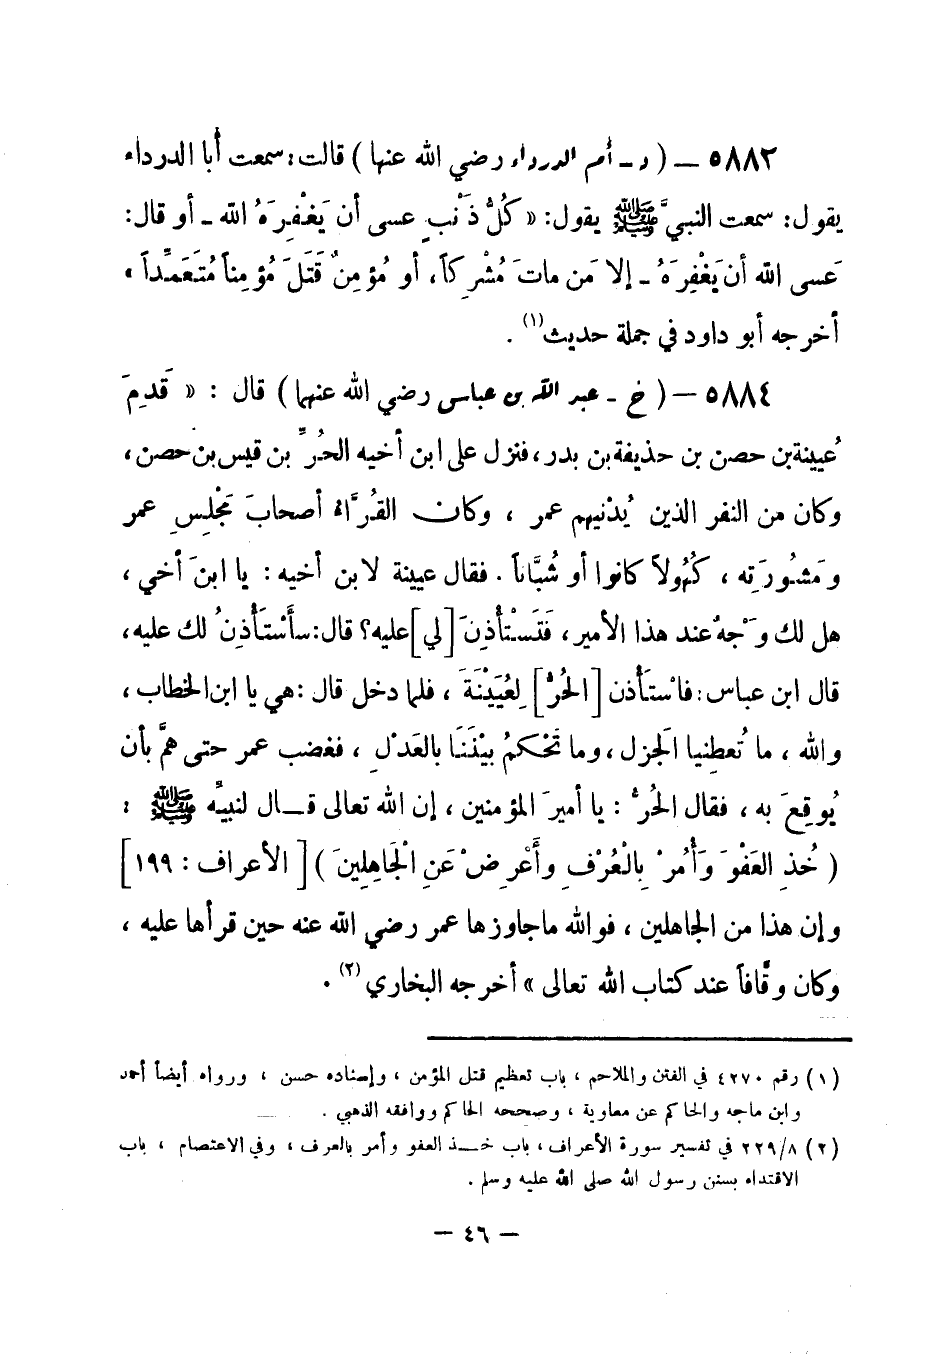 ٥٨٨٢ — ( د ـ أم الدرداء رضي الله عنها ) قالت : سمعت أبا الدرداء
يقول : سمعت النبيَّ ﷺ يقول : « كُلُّ ذَنْبٍ عسى أن يَغْفِرَهُ الله ـ أو قال :
عَسى الله أن يَغْفِرَهُ ـ إلا مَن ماتَ مُشْرِكاً ، أو مُؤمِنٌ قَتَلَ مُؤمِناً مُتَعَمِّداً »
أخرجه أبو داود في جملة حديث (١) .
٥٨٨٤ — ( خ ـ عبد الله بن عباس رضي الله عنهما ) قال : « قَدِمَ
عُيينة بن حصن بن حذيفة بن بدر ، فنزل على ابن أخيه الحُرِّ بن قيس بن حصن ،
وكان من النفر الذين يُدْنيهم عمر ، وكان القُرَّاءُ أصحابَ مَجْلِسِ عمر
ومَشُورَتِه ، كُهُولاً كانوا أو شُبَّاناً . فقال عيينة لابن أخيه : يا ابنَ أخي ،
هل لك وَجْهٌ عند هذا الأمير ، فَتَسْتأْذِنَ [ لي ] عليه ؟ قال : سأَسْتَأْذِنُ لك عليه ،
قال ابن عباس : فاسْتَأْذن [ الحُرُّ ] لِعُيَيْنَةَ ، فلما دخل قال : هي يا ابن الخطاب ،
والله ، ما تُعطِنيا الجَزل ، وما تَحْكمُ بيْنَنَا بالعَدْلِ ، فغضب عمر حتى همَّ بأن
يُوقِعَ به ، فقال الحُرُّ : يا أميرَ المؤمنين ، إن الله تعالى قــال لنبيِّه ﷺ :
( خُذِ العَفْوَ وَأْمُرْ بِالْعُرْفِ وأَعْرِضْ عَنِ الْجَاهِلِينَ ) [ الأعراف : ١٩٩ ]
وإن هذا من الجاهلين ، فوالله ماجاوزها عمر رضي الله عنه حين قرأها عليه ،
وكان وقَّافاً عند كتاب الله تعالى » أخرجه البخاري (٢) .
(١) رقم ٤٢٧٠ في الفتن والملاحم ، باب تعظيم قتل المؤمن ، وإسناده حسن ، ورواه أيضاً أحمد
وابن ماجه والحاكم عن معاوية ، وصححه الحاكم ووافقه الذهبي .
(٢) ٢٢٩/٨ في تفسير سورة الأعراف ، باب خــذ العفو وأمر بالعرف ، وفي الاعتصام ، باب
الاقتداء بسنن رسول الله صلى الله عليه وسلم .
— ٤٦ —